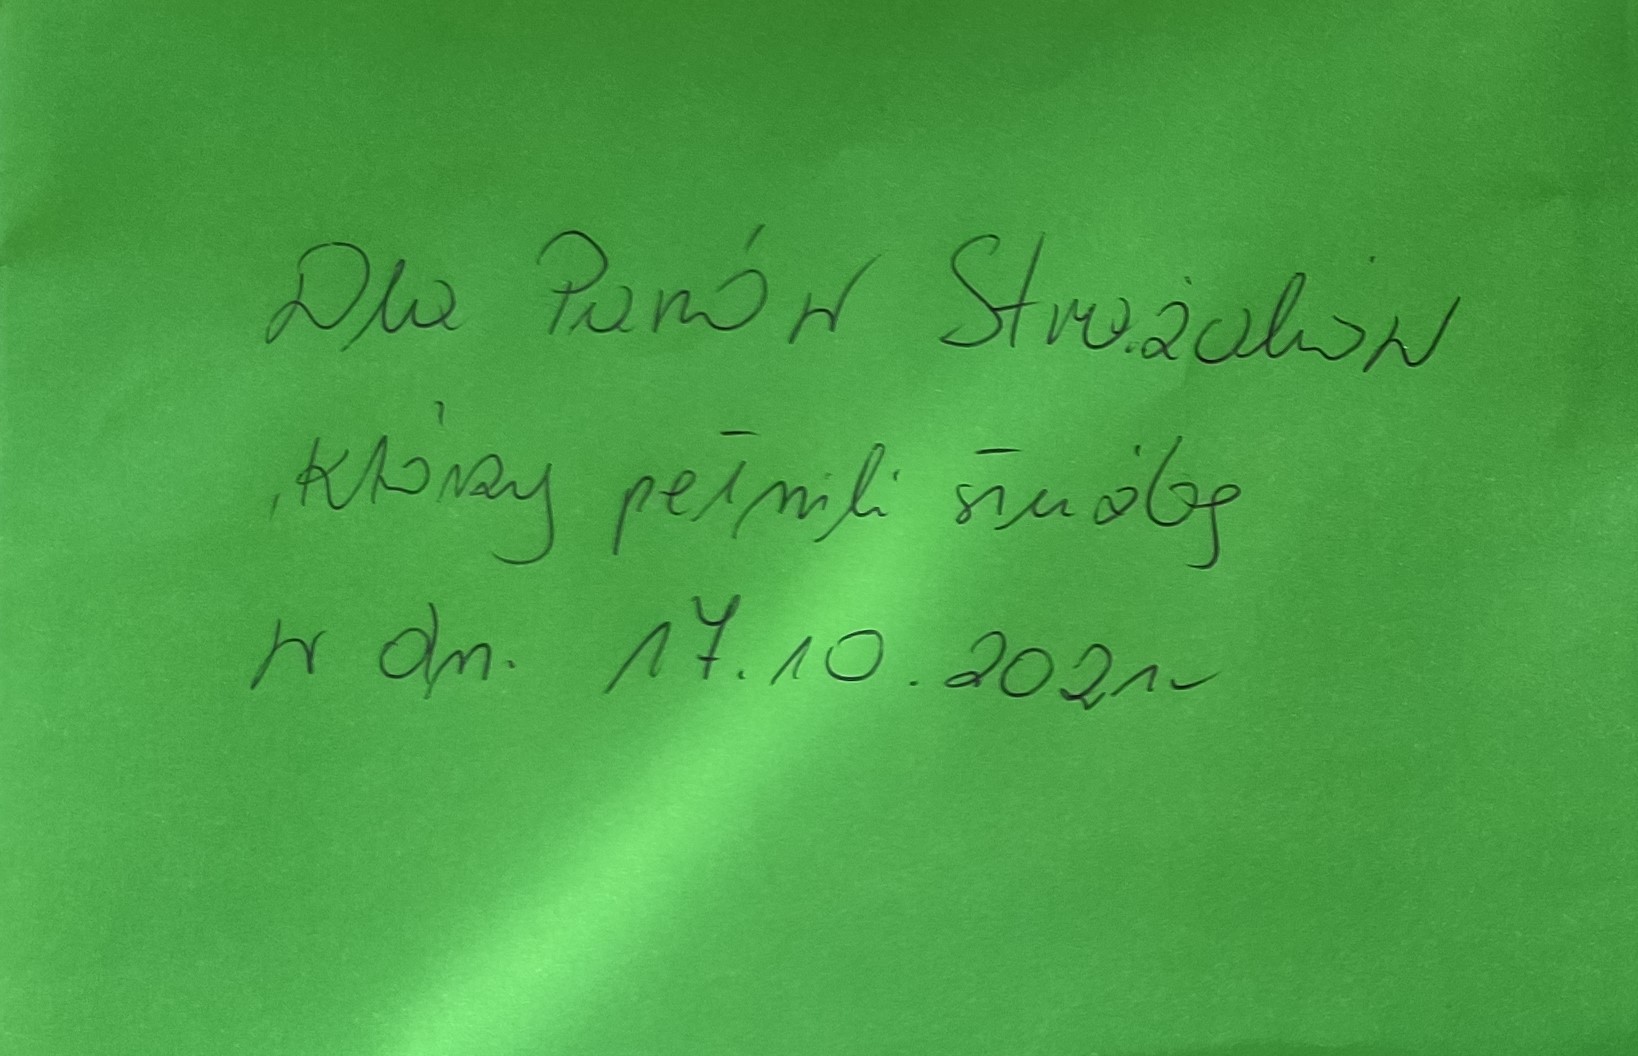 Dla Panów Strażaków
, którzy pełnili służbę
w dn. 17.10.2021r